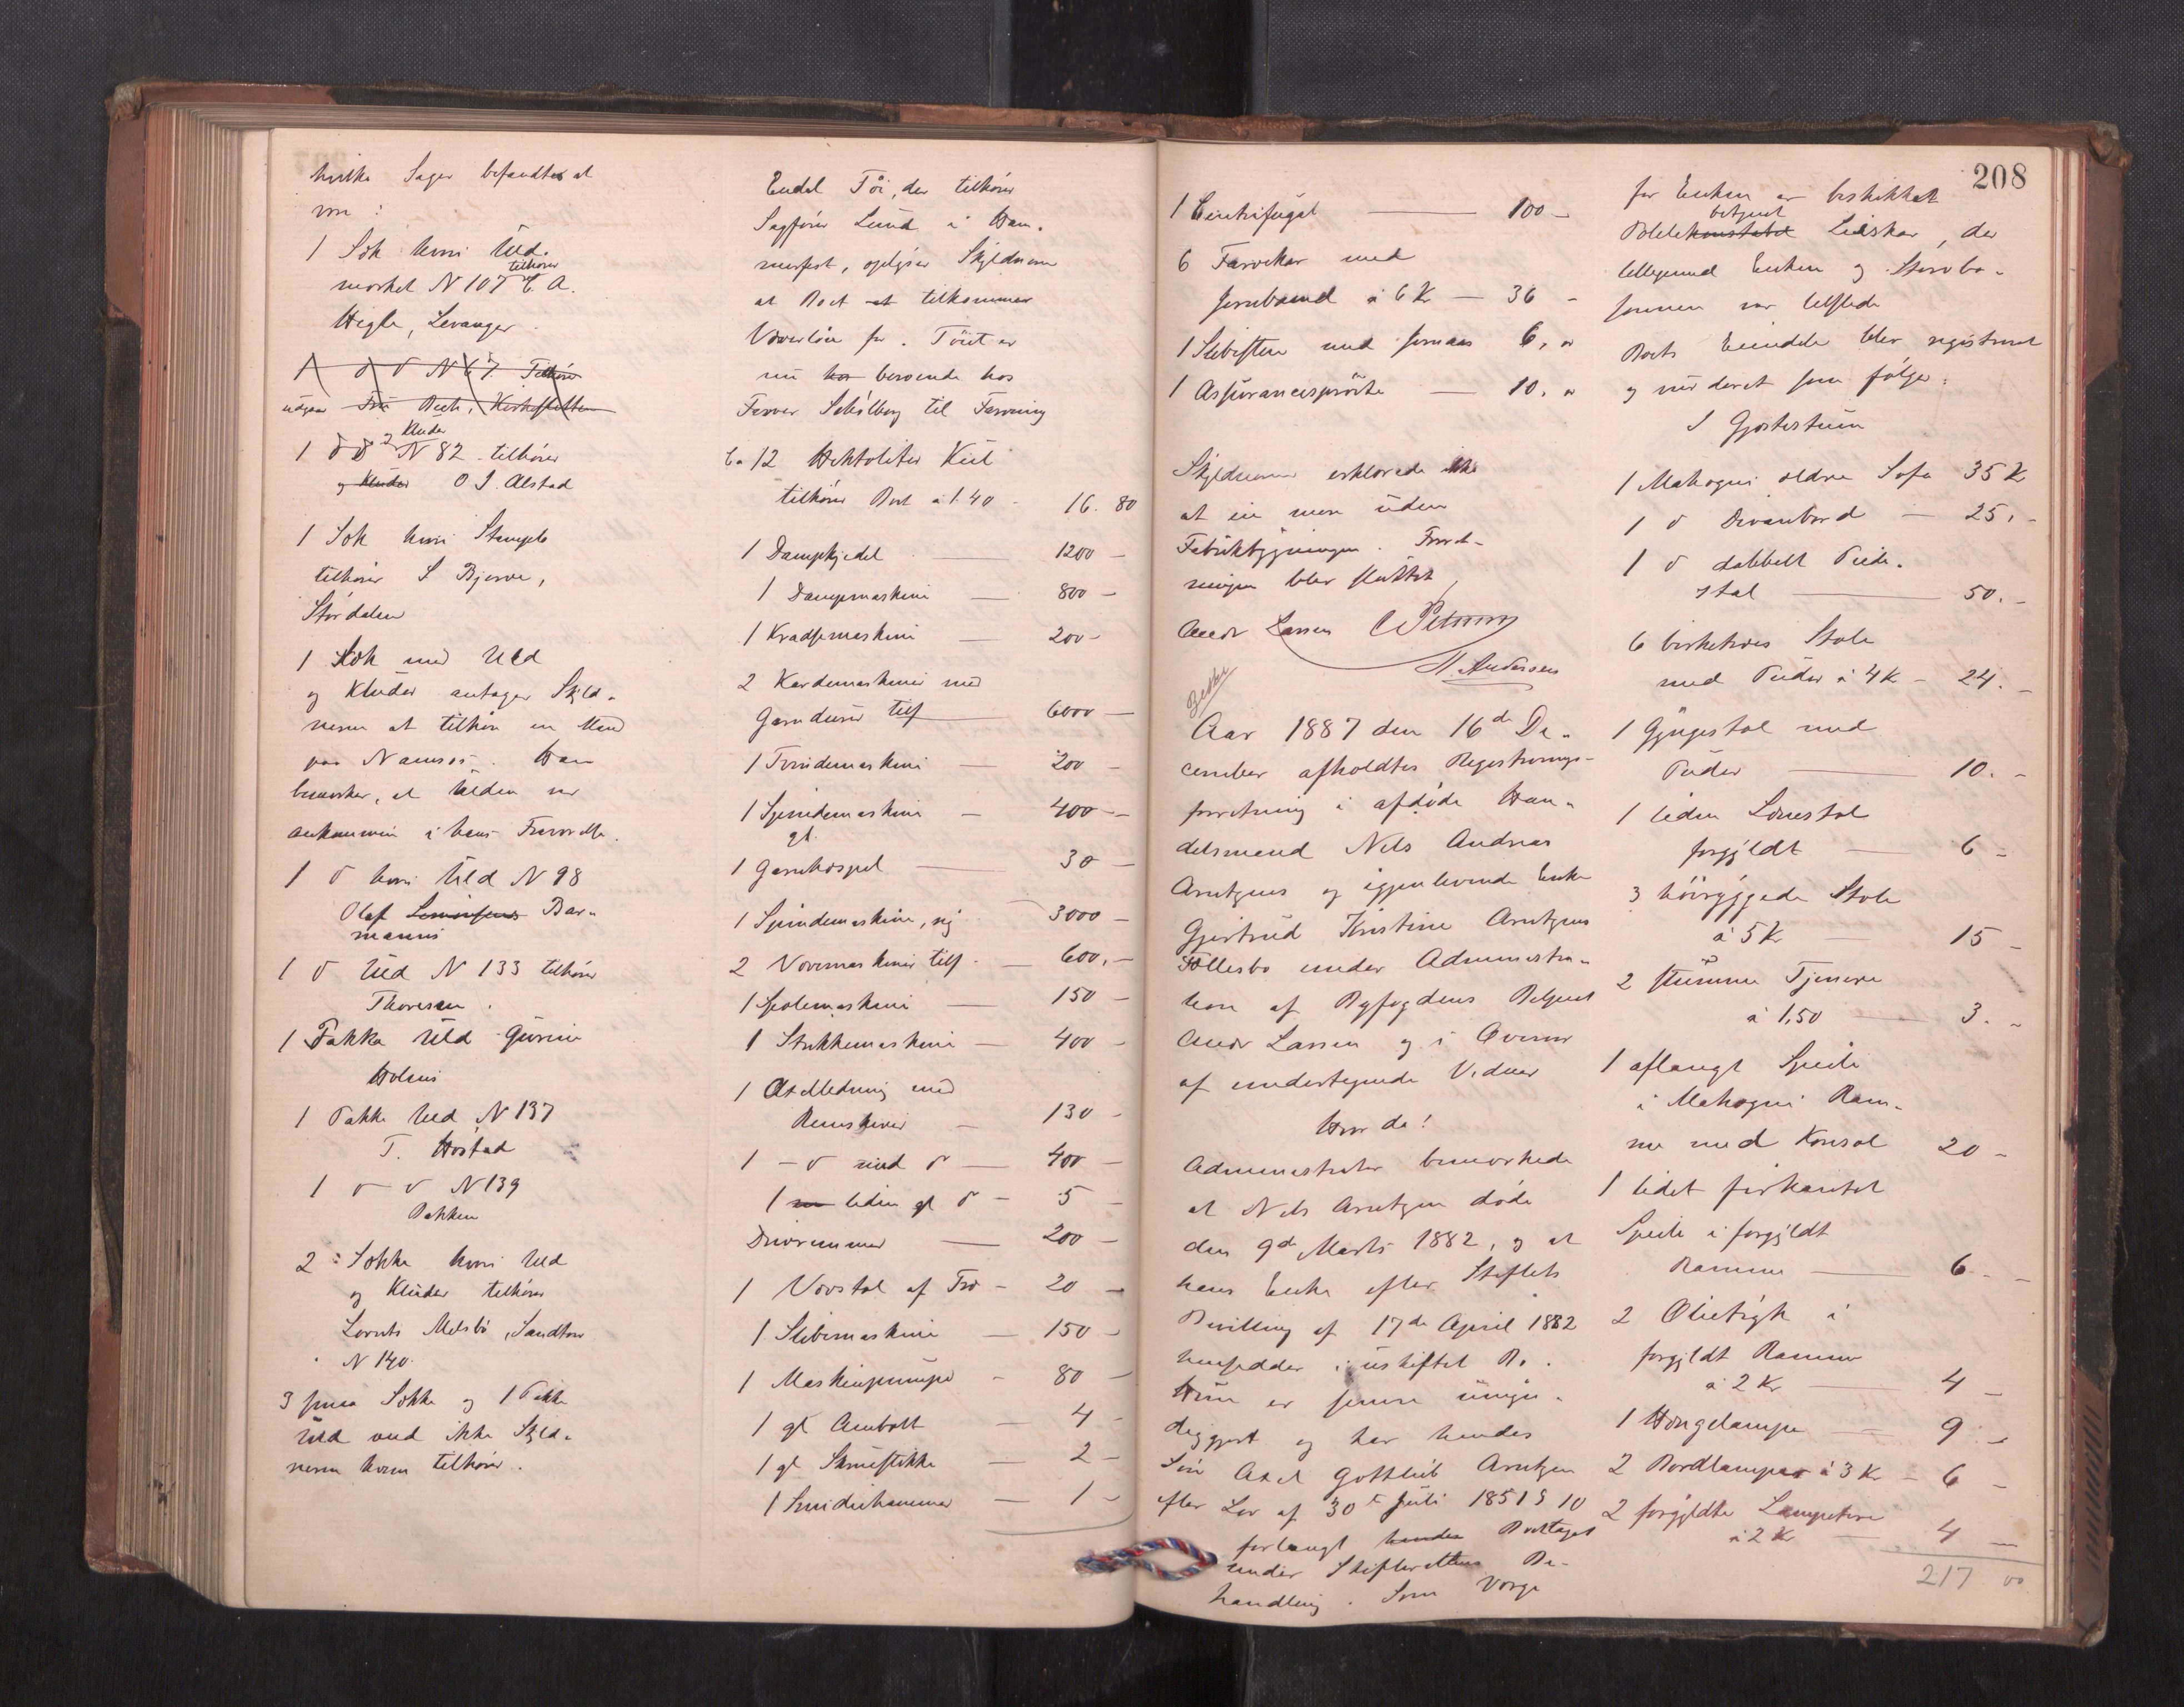 hvilke Sager befandtes at
være:
1 Sæk hvori Uld.
mærket N 107 tilhører E. A.
Hegle, Levanger.
1 d d N 67. Tilhører
udgaar Fru Bech, Kirkesletten
1 d d 2 Kluder N 82 tilhører
og Kluder O J. Alstad
1 Sæk hvori Stampe
tilhører S Bjerve,
Stördalen
1 Sæk med Uld
og Kluder antager Skyld-
neren at tilhøre en Mand
paa Namsos. Han
bemærker, at Ulden var
ankommen i hans Fravær.
1 d hvori Uld N 98
Olaf Bar-
manns
1 d Uld N 133 tilhører
Thoresen.
1 Pakke Uld Gurine
Holms
1 Pakke Uld N 137
T. Høstad
1 d d N 139
Bakken
2 Sække hvori Uld
og Kluder tilhører
Lornts Melsbö, Sandtorv
N 140.
3 smaa Sække og 1 Pakke
Uld ved ikke Skyld-
neren hvem tilhører.
Endel Töi, der tilhører
Sagfører Lund i Ham-
merfest, opgiver Skyldneren
at Boet at tilkommer
Væverløn for. Töiet er
nu har beroende hos
Farver Schölberg til Farvning
Ca 12 Hektoliter Kul
tilhører Boet à 1.40 - 16. 80
1 Dampkjedel — 1200 -
1 Dampmaskine — 800 -
1 Kradsemaskine — 200 -
2 Kardemaskiner med
Garnduser tils — 6000 -
1 Tvindemaskine — 200 -
1 Spindemaskine gl. — 400 -
1 Garnhaspel — 30 -
1 Spindemaskine, ny 3000 -
2 Vævemaskiner tils. — 600. -
1 Spolemaskine — 150 -
1 Strikkemaskine — 400 -
1 Axelledning med
Remskiver — 130 -
1 - d med d — 400 -
1 liden gl d - 5 -
Drivremmer — 200 -
1 Vævstol af Træ - 20 -
1 Slibemaskine — 150 -
1 Maskinpumpe - 80 -
1 gl Ambolt — 4 -
1 gl Skruestikke — 2 -
1 Smediehammer — 1 -
208
1 Centrifugal — 100 -
6 Farvekar med
Jernbaand à 6 Kr — 36 -
1 Slibesten med Jernaas 6, "
1 Assurancesprøite — 10, "
Skyldneren erklærede ikke
at eie mere uden
Fabrikbygningen. Forret-
ningen blev sluttet
Andr Larsen C Petersen
N. Andersen
Aar 1887 den 16de De-
cember afholdtes Registrerings-
forretning i afdøde Han-
delsmand Nils Andreas
Arntzens og igjenlevende Enke
Gjertrud Kristine Arntzens
Fællesbo under Administra-
tion af Byfogdens Betjent
Andr Larsen og i Overvær
af undertegnede Vidner
Hvor da!
Administrator bemærkede
at Nils Arntzen døde
den 9de Marts 1882, og at
hans Enke efter Stiftets
Bevilling af 17de April 1882
hensidder i uskiftet Bo.
Hun er senere umyn-
diggjort og har hendes
Søn Axel Gottlieb Arntzen
efter Lov af 30te Juli 1851 § 10
forlangt hendes Bo taget
under Skifterettens Be-
handling. Som Værge
for Enken er beskikket
Politikonstabel betjent Leisker, der
tilligemed Enken og Stervbo-
sønnen var tilstede
Boets Eiendele blev registreret
og vurderet som følger:
I Gjæstestuen
1 Mahogni ældre Sofa 35 Kr
1 d Divanbord — 25, -
1 d dobbelt Pude-
stol — 50. -
6 birketræs Stole
med Puder à 4 Kr - 24. -
1 Gyngestol med
Puder — 10. -
1 liden Lænestol
forgyldt — 6 -
3 höiryggede Stole
à 5 Kr — 15 -
2 stumme Tjenere
à 1,50 — 3. -
1 aflangt Speile
i Mahogni Ram-
me med Konsol 20 -
1 lidet firkantet
Speile i forgyldt
Ramme — 6 - -
2 Olietryk i
forgyldt Ramme
à 2 Kr — 4 -
1 Hængelampe — 9 -
2 Bordlamper à 3 Kr - 6 -
2 forgyldte Lampetter
à 2 Kr — 4 -
217 00